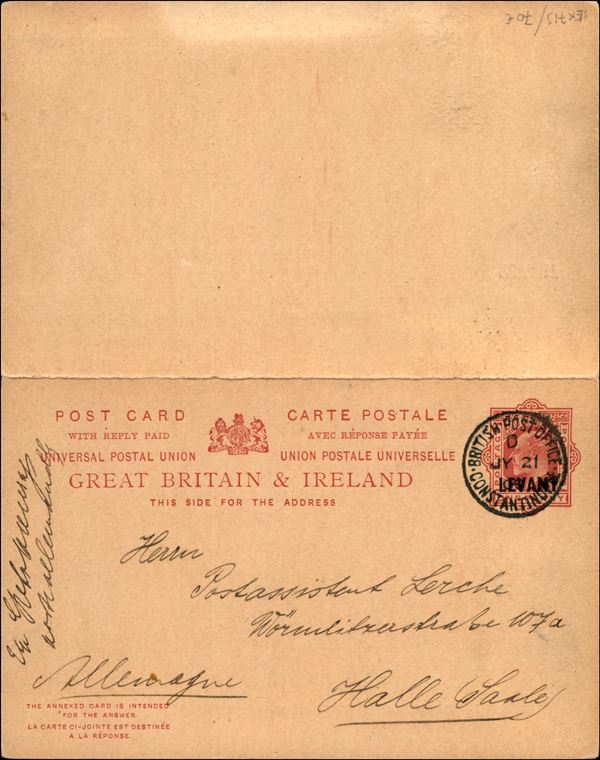 POST CARD
WITH REPLY PAID
UNIVERSAL POSTAL UNION
CARTE POSTALE
AVEC RÉPONSE PAYÉE
UNION POSTALE UNIVERSELLE
GREAT BRITAIN & IRELAND
THIS SIDE FOR THE ADDRESS
BRITISH POST OFFICE
D
JY 21
CONSTANTINOPLE
LEVANT
Herrn
Postassistent Lerche
Wörmlitzerstraße 107a
Halle Saale
Allemagne
THE ANNEXED CARD IS INTENDED
FOR THE ANSWER.
LA CARTE CI-JOINTE EST DESTINÉE
A LA RÉPONSE.